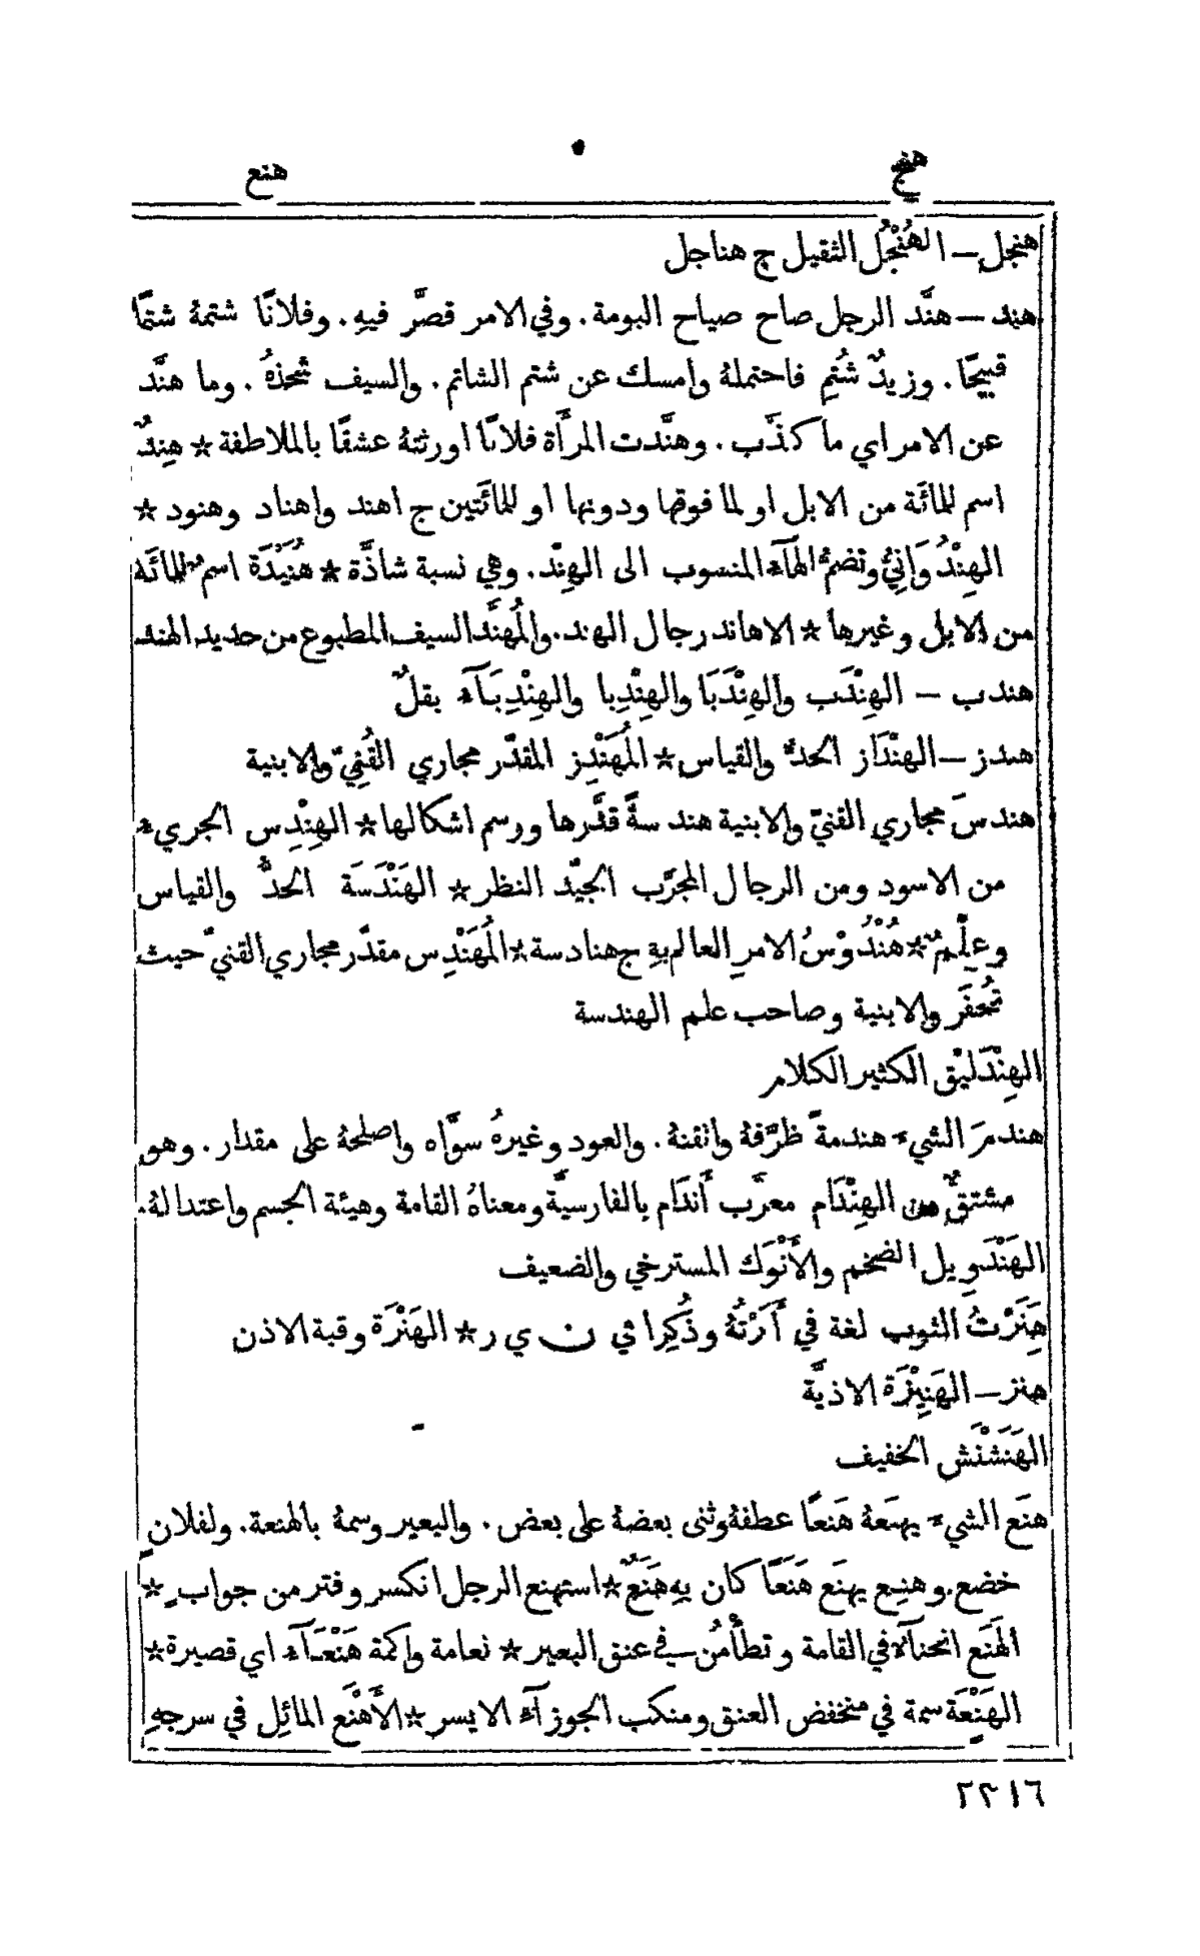 هنج
هنع
هنجل — الهُنْجُل الثقيل ج هناجل
هند — هنَّد الرجل صاح صياح البومة. وفي الامر قصَّر فيهِ. وفلانًا شتمهُ شتمًا
قبيحًا. وزيدٌ شُتِمِ فاحتملهُ وامسك عن شتم الشاتم. والسيف شحذهُ. وما هنَّد
عن الامر اي ما كذَّب. وهنَّدت المرأَة فلانًا اورثتهُ عشقًا بالملاطفة * هِندٌ
اسم للمائَة من الابل او لما فوقها ودونها او للمائَتين ج اهند واهناد وهنود *
الهِنْدُوَانِيُّ وتضمُّ الهآء المنسوب الى الهِنْد. وهي نسبة شاذَّة * هُنَيْدَة اسمٌ للمائَة
من الابل وغيرها * الاهاند رجال الهند. والمُهنَّد السيف المطبوع من حديد الهند
هندب — الهِنْدَب والهِنْدَبَا والهِنْدِبا والهِنْدِبَآء بقلٌ
هندز — الهنْدَاز الحدُّ والقياس * المُهَنْدِز المقدّر مجاري القُنِيّ والابنية
هندسَ مجاري القنيّ والابنية هندسةً قدَّرها ورسم اشكالها * الهِنْدِس الجريء
من الاسود ومن الرجال المجرَّب الجيّد النظر * الهَنْدَسَة الحدُّ والقياس
وعِلْمٌ * هُنْدُوْسُ الامرِ العالم بهِ ج هنادسة * المُهَنْدِس مقدّر مجاري القنيّ حيث
تُحفَر والابنية وصاحب علم الهندسة
الهِنْدَلِيْق الكثير الكلام
هندمَ الشيءَ هندمةً ظرَّفهُ واتقنهُ. والعود وغيرهُ سوَّاه واصلحهُ على مقدار. وهو
مشتقٌّ من الهِنْدَام معرَّب أَندَام بالفارسيَّة ومعناهُ القامة وهيئة الجسم واعتدالهُ.
الهَنْدَوِيل الضخم والأَنْوَك المسترخي والضعيف
هَنَرْتُ الثوب لغة في أَنَرْتُهُ وذُكِرا في ن ي ر * الهَنْرَة وقبة الاذن
هنز — الهَنِيْزَة الاذيَّة
الهَنَشْنَش الخفيف
هنَع الشيءَ يهنَعهُ هَنعًا عطفهُ وثنى بعضهُ على بعض. والبعير وسمهُ بالهنعة. ولفلانٍ
خضع. وهنِع يهنَع هَنَعًا كان بهِ هَنَعٌ * استهنع الرجل انكسر وفتر من جوابٍ *
الهَنَع انحنآء في القامة وتطأْمُن في عنق البعير * نعامة واكمة هَنْعَآء اي قصيرة *
الهَنْعَة سمة في منخفض العنق ومنكب الجوزآء الايسر * الأَهْنَع المائِل في سرجهِ